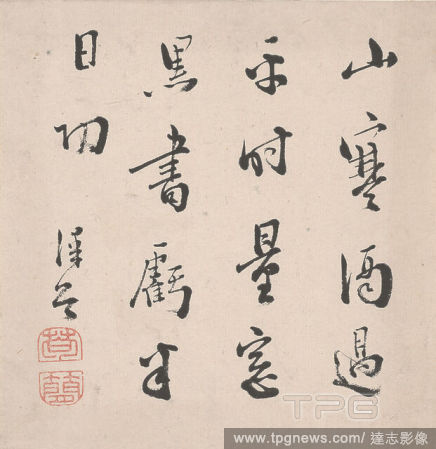 山寒酒過
平时量窓
黑書虧半
日功
TPG
www.tpgnews.com/ 達志影像